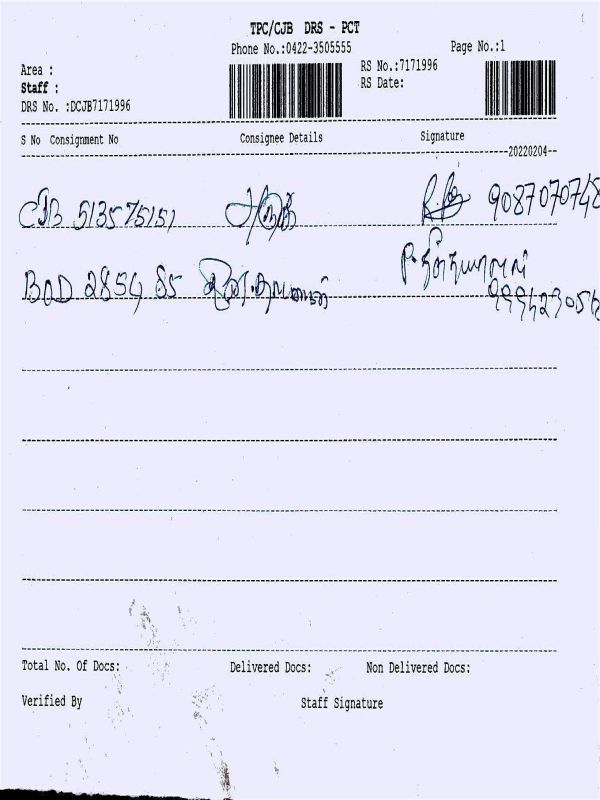 TPC/CJB DRS - PCT
Phone No.:0422-3505555
Page No.:1
Area :
RS No.:7171996
Staff :
RS Date:
DRS No. :DCJB7171996
S No Consignment No Consignee Details Signature
20220204
CJB 513575151 9087070748
BOD 2854 85
Total No. Of Docs: Delivered Docs: Non Delivered Docs:
Verified By Staff Signature